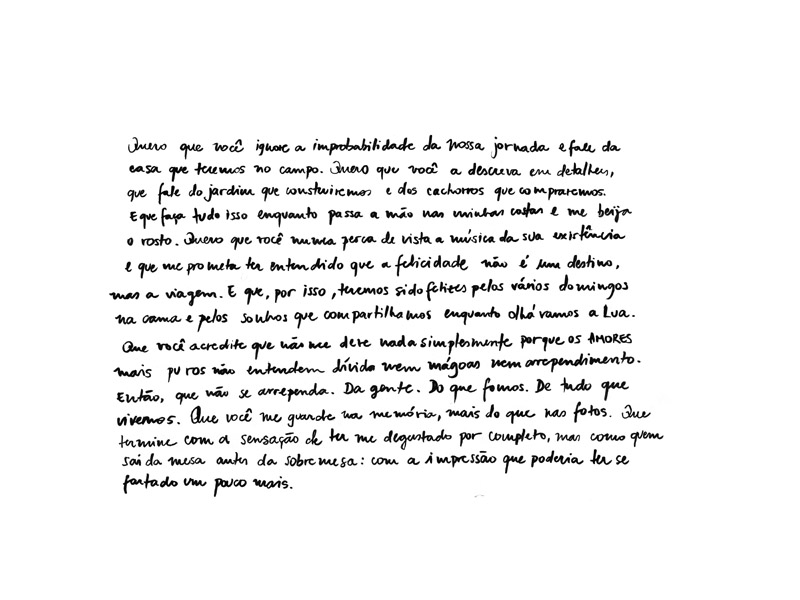 Quero que você ignore a improbabilidade da nossa jornada e fale da
casa que teremos no campo. Quero que você a descreva em detalhes,
que fale do jardim que construiremos e dos cachorros que compraremos.
E que faça tudo isso enquanto passa a mão nas minhas costas e me beija
o rosto. Quero que você nunca perca de vista a música da sua existência
e que me prometa ter entendido que a felicidade não é um destino,
mas a viagem. E que, por isso, teremos sido felizes pelos vários domingos
na cama e pelos sonhos que compartilhamos enquanto olhávamos a Lua.
Que você acredite que não me deve nada simplesmente porque os AMORES
mais puros não entendem dívida nem mágoas nem arrependimento.
Então, que não se arrependa. Da gente. Do que fomos. De tudo que
vivemos. Que você me guarde na memória, mais do que nas fotos. Que
termine com a sensação de ter me degustado por completo, mas como quem
sai da mesa antes da sobremesa: com a impressão que poderia ter se
fartado um pouco mais.